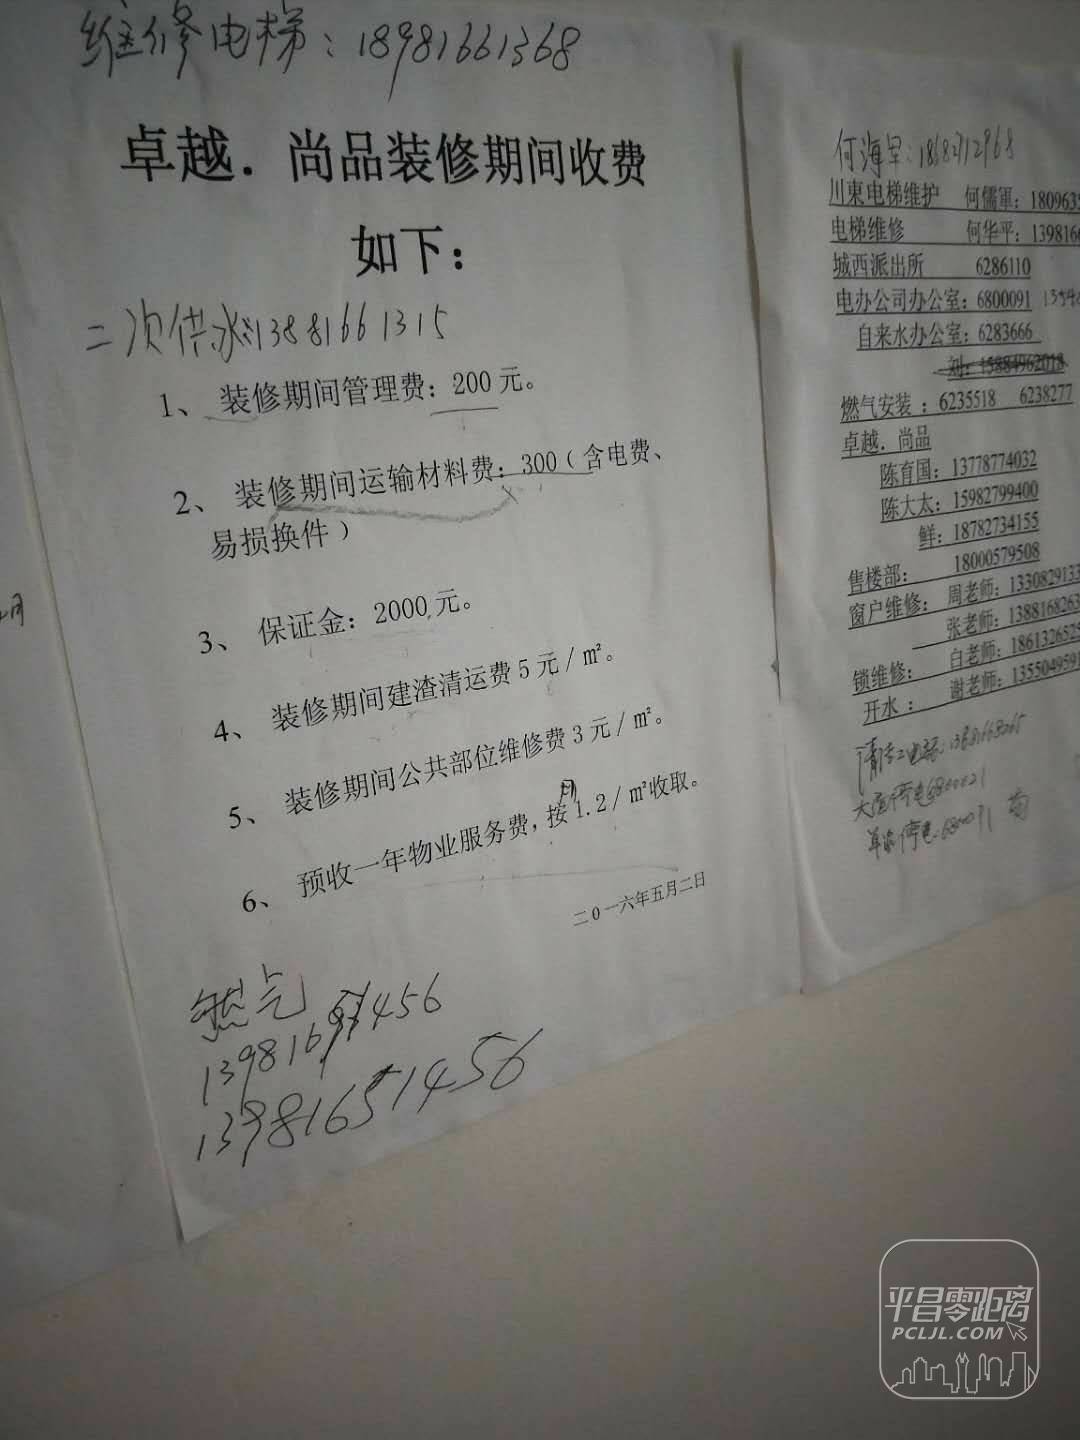 维修电梯：18981661368
卓越．尚品装修期间收费
如下：
二次供水13881661315
1、装修期间管理费：200元。
2、装修期间运输材料费：300（含电费、
易损换件）
3、保证金：2000元。
4、装修期间建渣清运费5元/㎡。
5、装修期间公共部位维修费3元/㎡。
月
6、预收一年物业服务费，按1.2/㎡收取。
二0一六年五月二日
燃气
13981651456
月
何海军：
川東电梯维护 何儒軍：1809635
电梯维修 何华平：1398166
城西派出所 6286110
电办公司办公室：6800091
自来水办公室：6283666
刘：15884962018
燃气安装：6235518 6238277
卓越．尚品
陈育国：13778774032
陈大太：15982799400
鲜：18782734155
售楼部： 18000579508
窗户维修：周老师：1330829133
张老师：1388168263
锁维修： 白老师：1861326525
开水： 谢老师：1355049591
停电6800021
停电：6800091
平昌零距离
PCLJL.COM